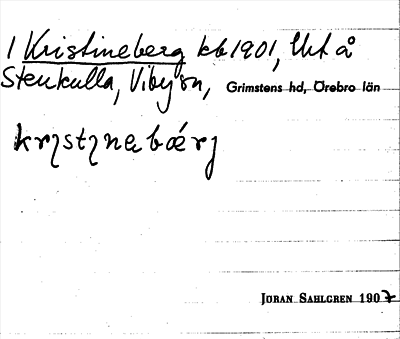 1 Kristineberg kb 1901, lht å
Stenkulla, Viby sn, Grimstens hd, Örebro län
krıstınebǽrj
JÖRAN SAHLGREN 1907